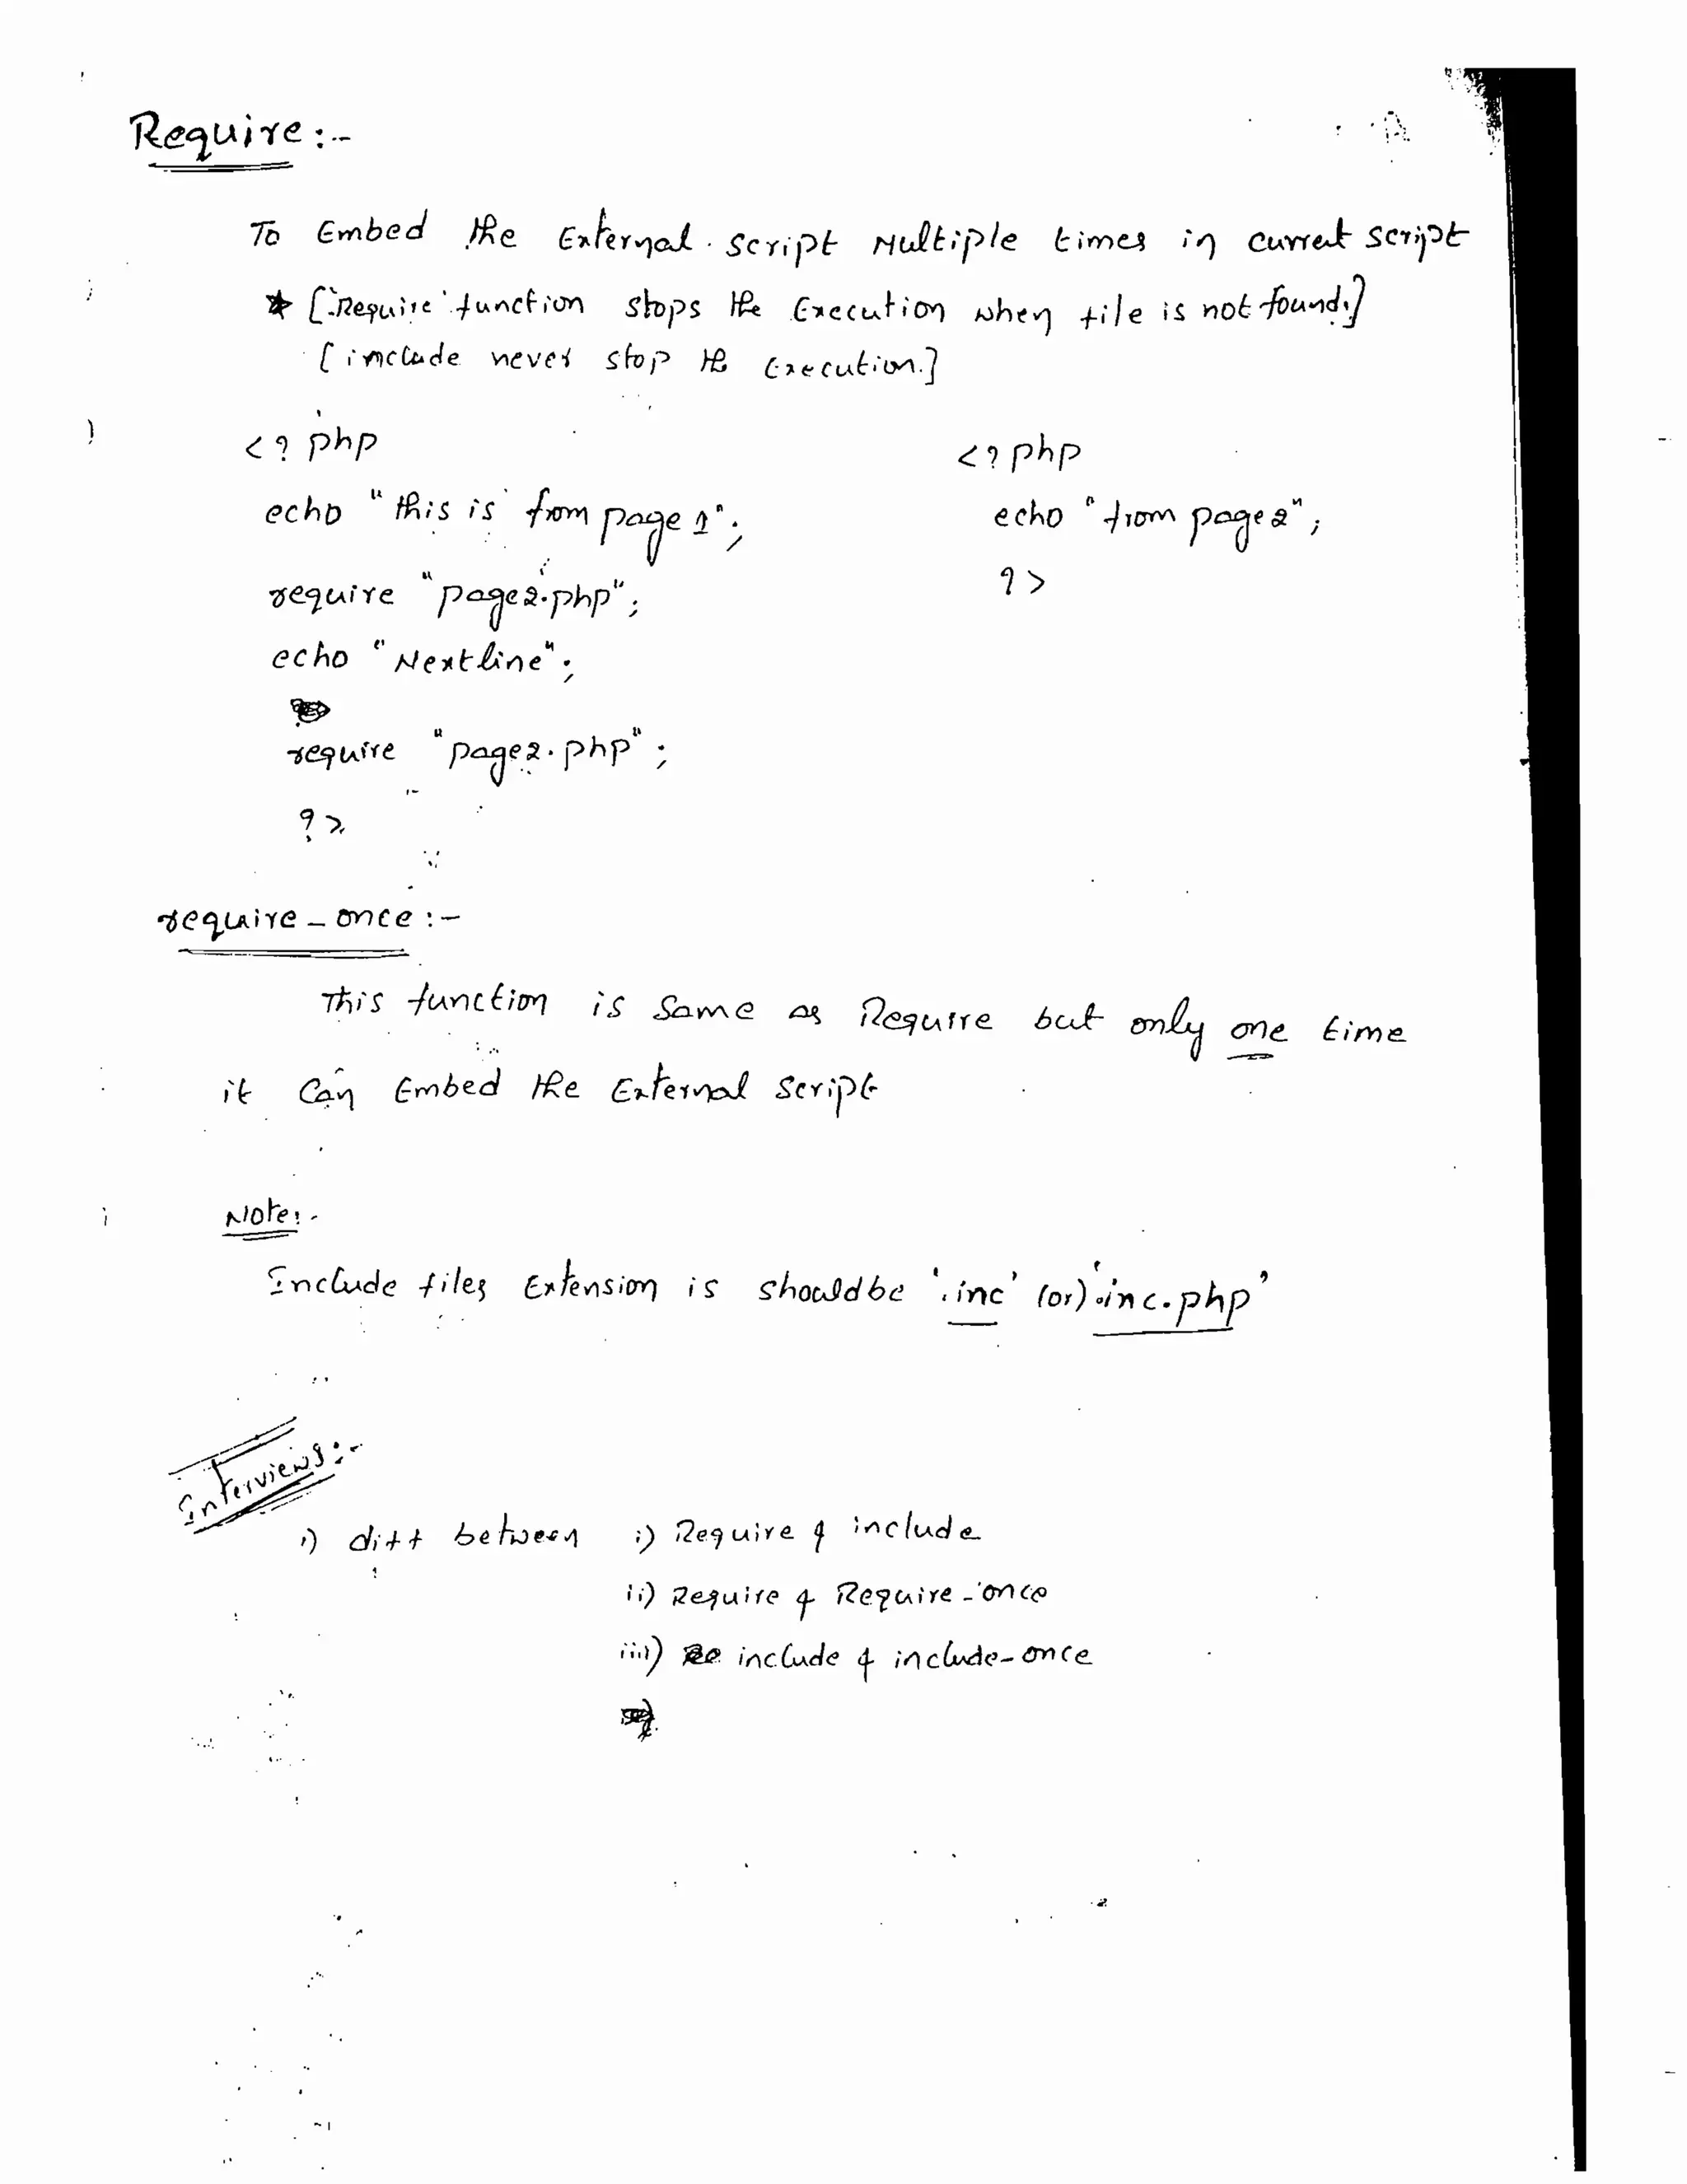 Require :-
To Embed the External script Multiple times in current script
* ['Require' function stops the Execution when file is not found.]
[include never stop the Execution.]
<? php
echo "this is from page 1";
require "page2.php";
echo "Next line";
require "page2.php";
?>
<? php
echo "from page2";
?>
require_once :-
This function is Same as Require but only one time
it Can Embed the External Script
Note:-
Include files Extension is shouldbe '.inc' (or) '.inc.php'
Interviews:-
i) diff between i) Require & include
ii) Require & Require_once
iii) include & include_once